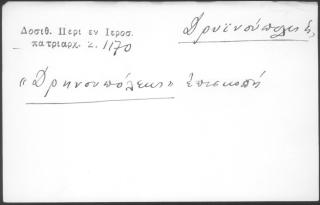 Δοσιθ. Περὶ ἐν Ἱεροσ.
πατριαρχ. σ. 1170
Δρυϊνούπολις
«Δρηνουπόλεως» ἐπισκοπή